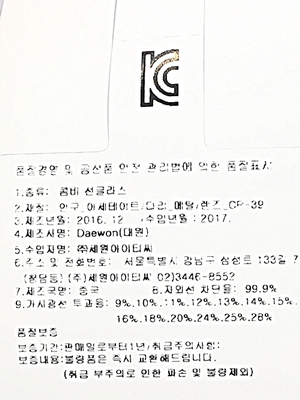 KC
품질경영 및 공산품 안전 관리법에 의한 품질표시
1.종류: 콤비 선글라스
2.재질: 안구_아세테이트/다리_메탈/렌즈_CR-39
3.제조년월: 2016. 12 /수입년월: 2017.
4.제조사명: Daewon(대원)
5.수입자명: ㈜세원아이티씨
6.주소 및 전화번호: 서울특별시 강남구 삼성로 133길 7
(청담동) (주)세원아이티씨 02)3446-8552
7.제조국명: 중국 8.자외선 차단율: 99.9%
9.가시광선 투과율: 9%,10%,11%,12%,13%,14%,15%,
16%,18%,20%,24%,25%,28%
품질보증
보증기간:판매일로부터1년/취급주의사항:
보증내용:불량품은 즉시 교환해드립니다.
(취급 부주의로 인한 파손 및 불량제외)